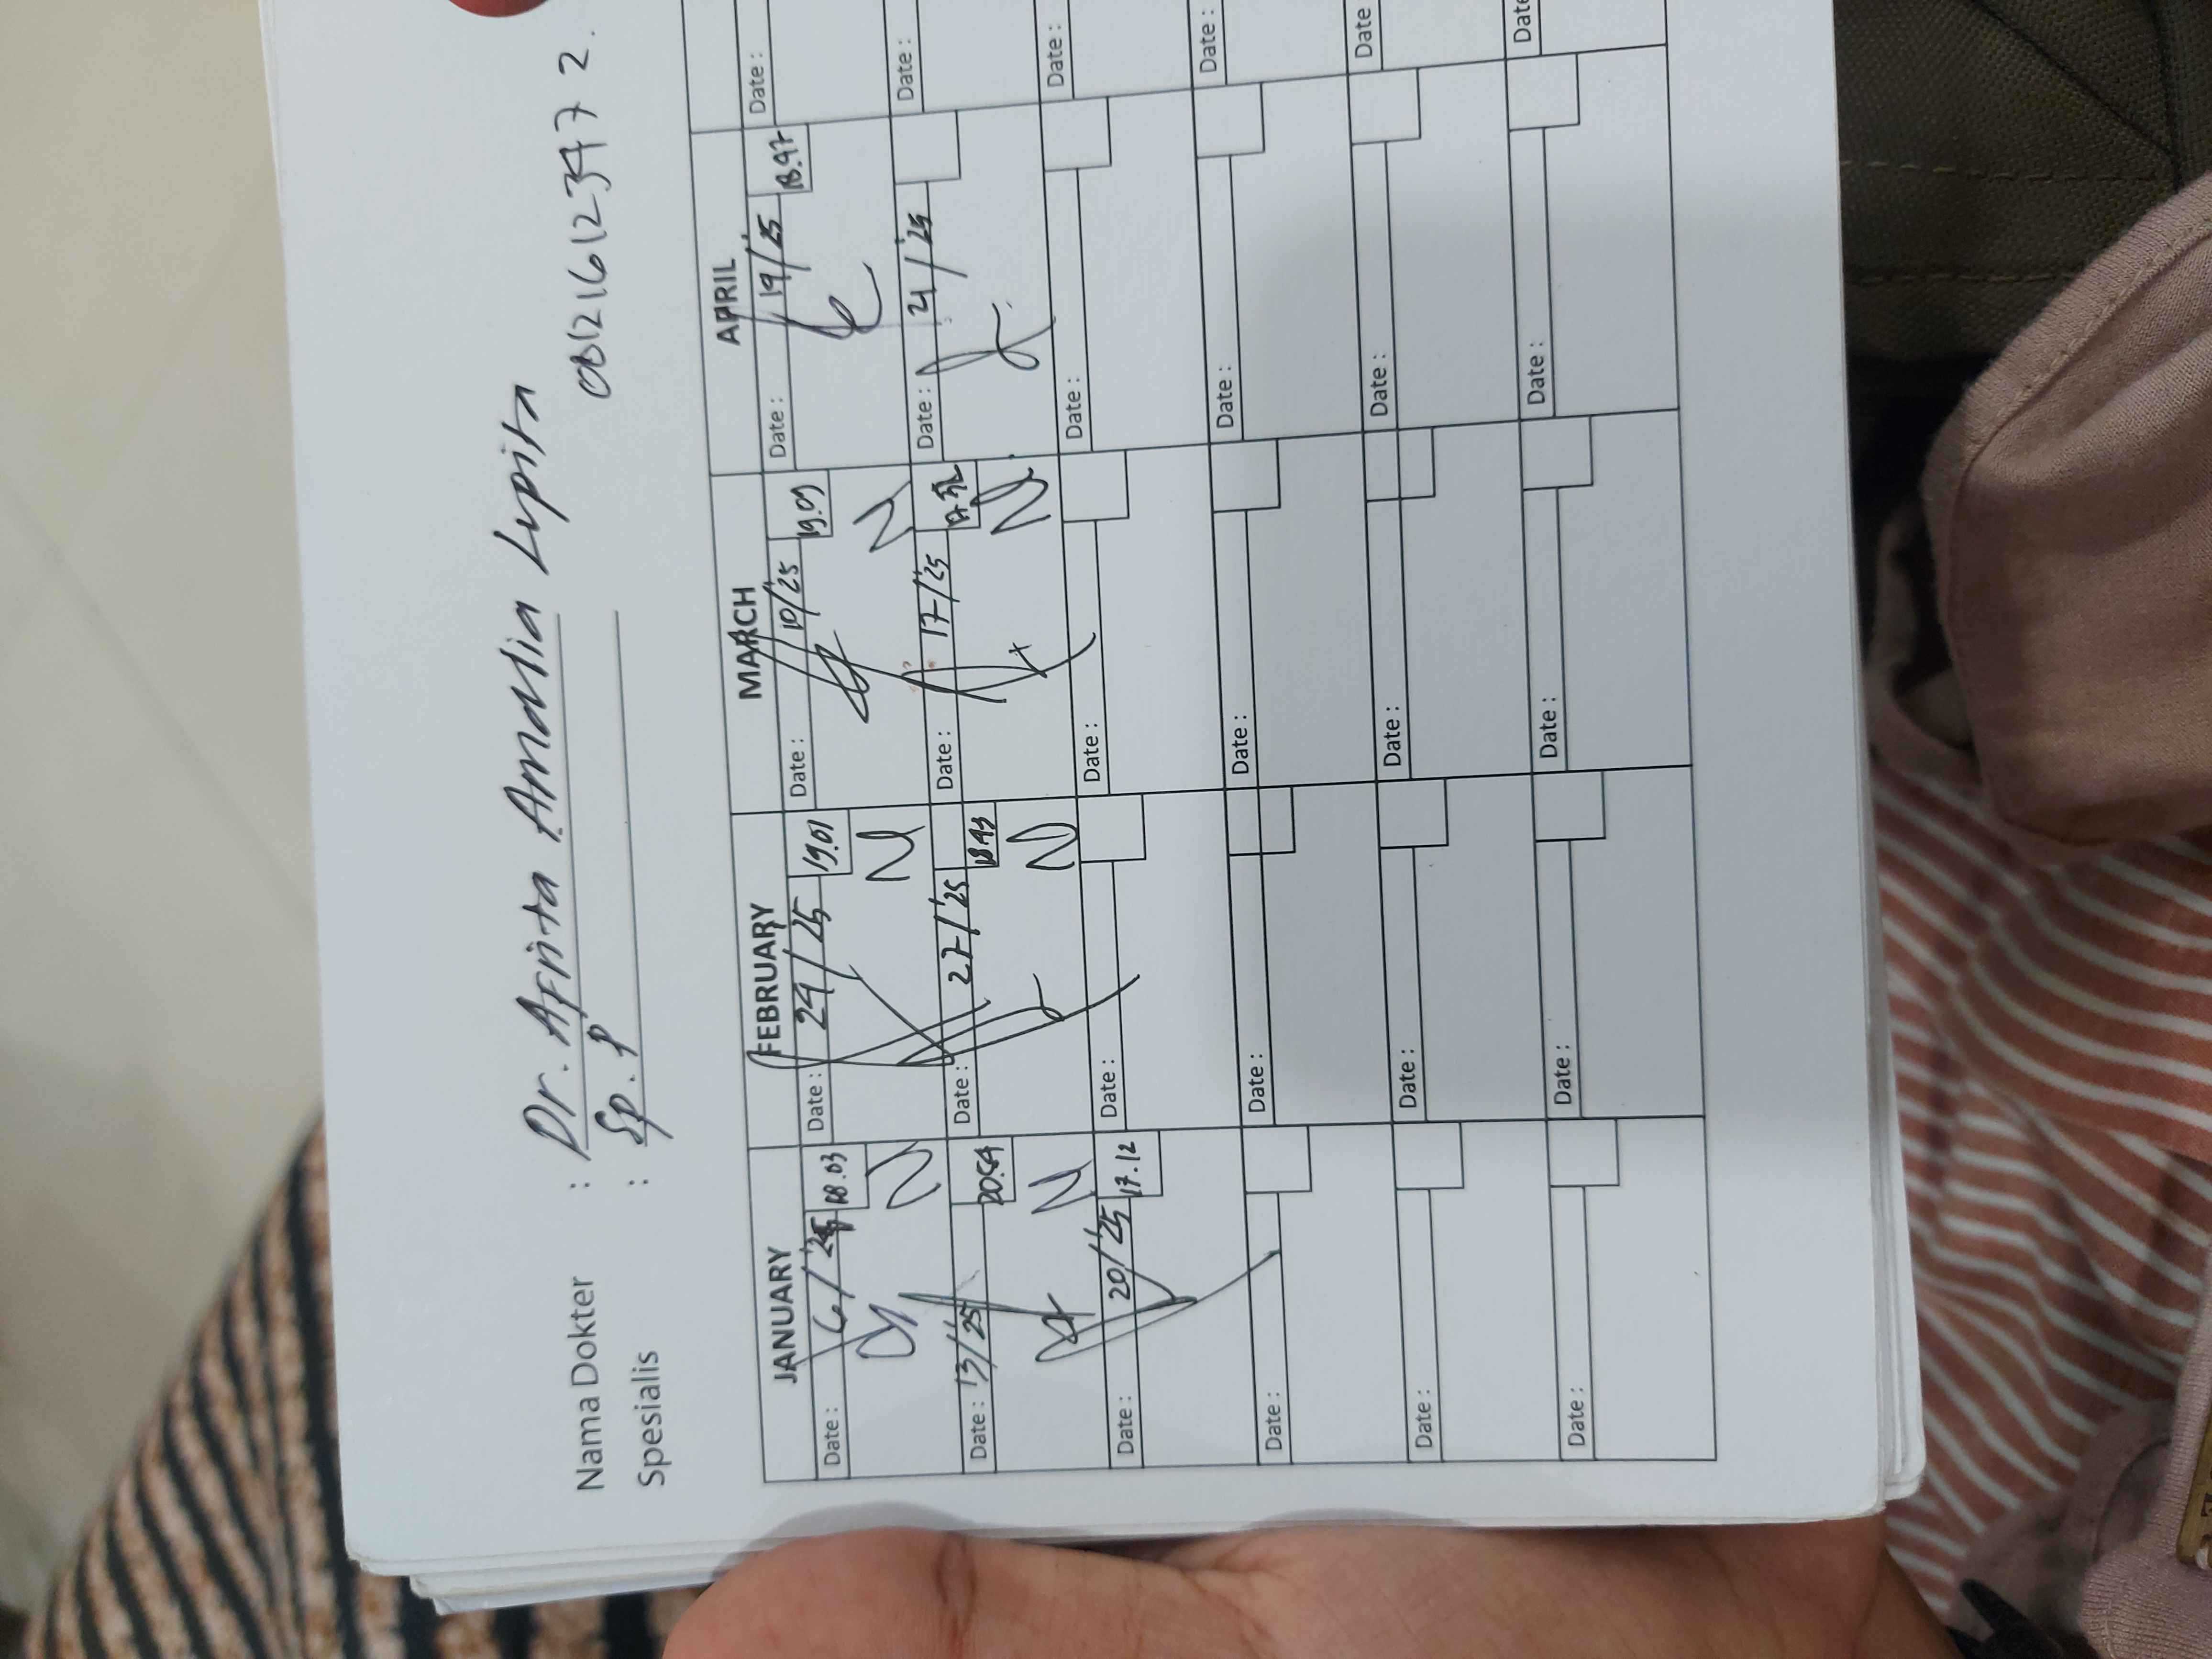 Nama Dokter : Dr. Afrita Amalia Lupita
Spesialis : Sp. P
JANUARY FEBRUARY MARCH APRIL
Date : 6/'25 18.03 Date : 24/'25 19.01 Date : 10/'25 19.09 Date : 19/'25 18.47 Date :
N N N
Date : 13/'25 20.54 Date : 27/'25 18.43 Date : 17/'25 Date : 21/'25 Date :
N N N
Date : 20/'25 17.12 Date : Date : Date : Date :
Date : Date : Date : Date : Date :
Date : Date : Date : Date : Date
Date : Date : Date : Date : Date